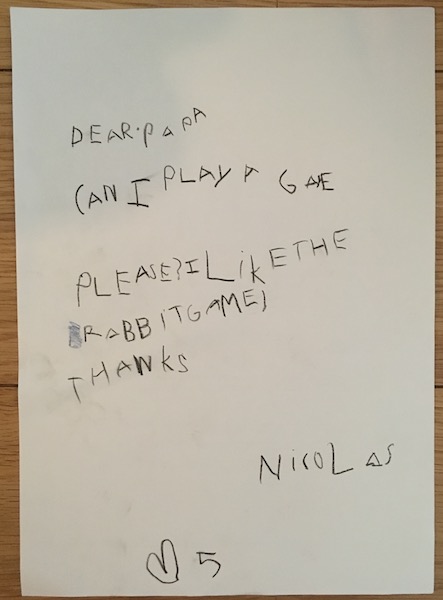 DEAR·PAPA
CAN I PLAY A GAE
PLEASE?I LikETHE
RABBITGAME)
THANKS
NicoLAS
♡ 5